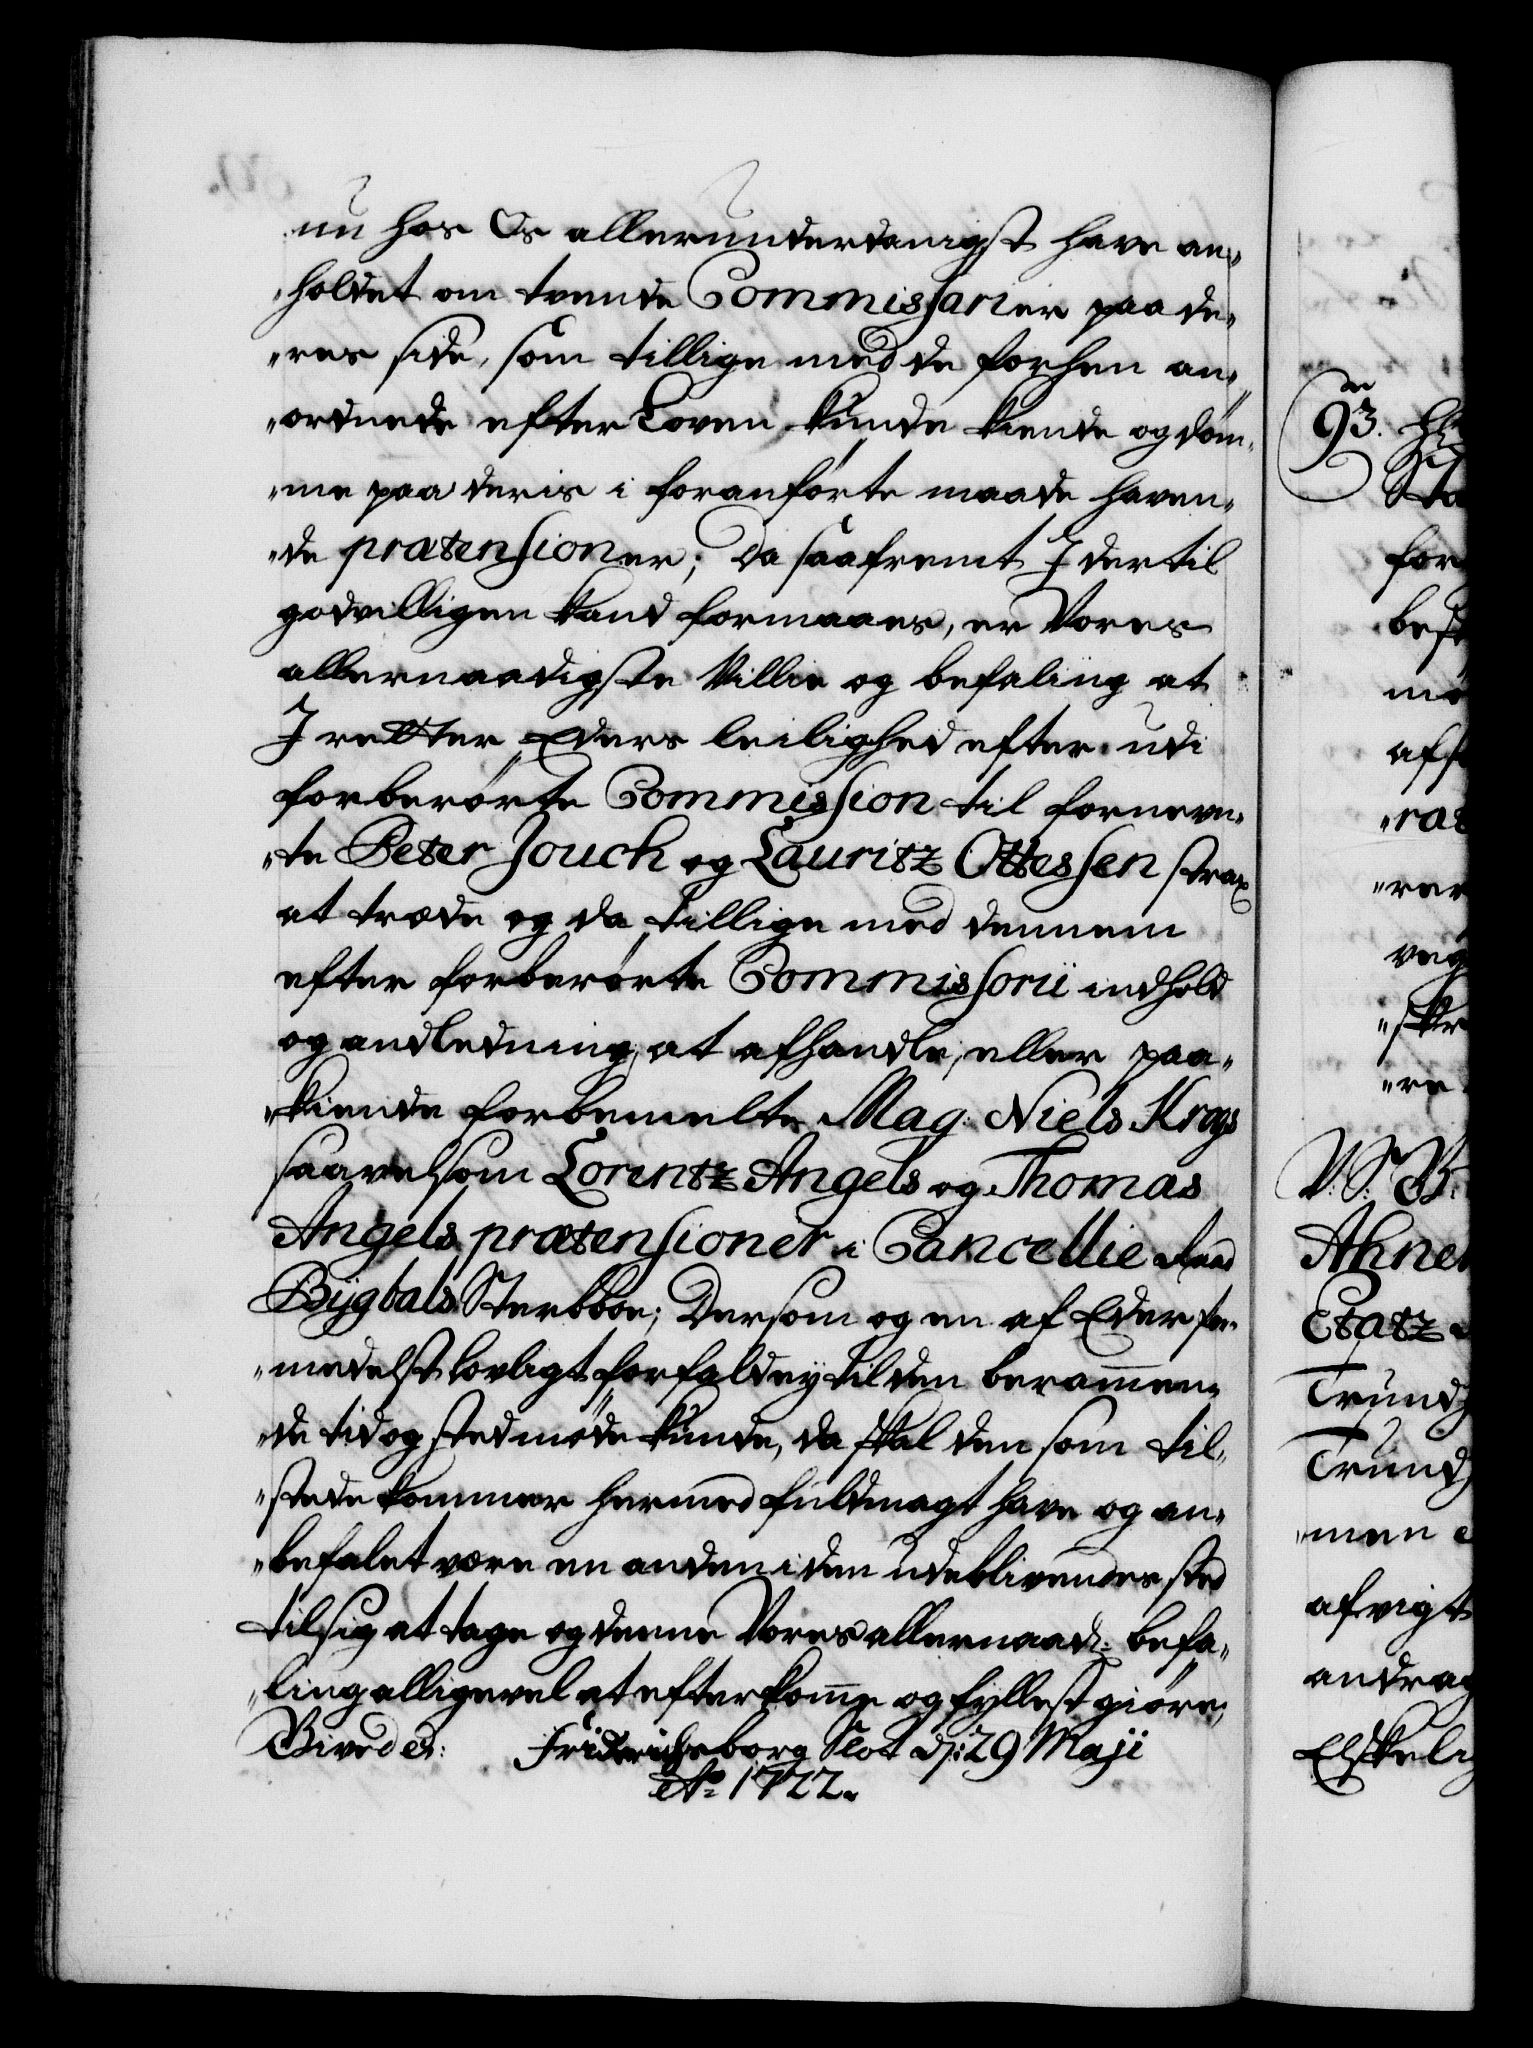 nu hos Os allerunderdanigst have an-
holdet om tvende Commissarier paa de-
res side, som tillige med de forhen an-
ordnede efter Loven kunde kiende og döm-
me paa deris i foranförte maade haven-
de prætensioner; Da saafremt I dertil
godvilligen kand formaaes, er Vores
allernaadigste Villie og befaling at
I retter Eders leilighed efter udi
forberörte Commission til fornevn-
te Peter Jouch og Lauritz Ottessen strax
at træde og da tillige med dennem
efter forberörte Commissorii indhold
og andledning at afhandle, eller paa-
kiende forbemelte Mag. Niels Krogs
saavelsom Lorentz Angels og Thomas
Angels prætensioner i Cancellie Raad
Bÿgbals Sterbboe; Dersom og en af Eder for-
medelst lovligt forfald eÿ til den berammen-
de tid og sted möde kunde, da skal den som til-
stede kommer hermed fuldmagt have og an-
befalet være en anden i den udeblivendes sted
til sig at tage og denne Vores allernaad: befa-
ling alligevel at efterkomme og fyllest giöre,
Bived etc: Friderichsborg Slot d: 29 Maji
Ao 1722.
93.
Sta
for
möd
rar
rer
veg
skr
re
V. S. B.
Ahne
Etatz
Trundh
Trundh
men
afvigt
andrag
Elskelig